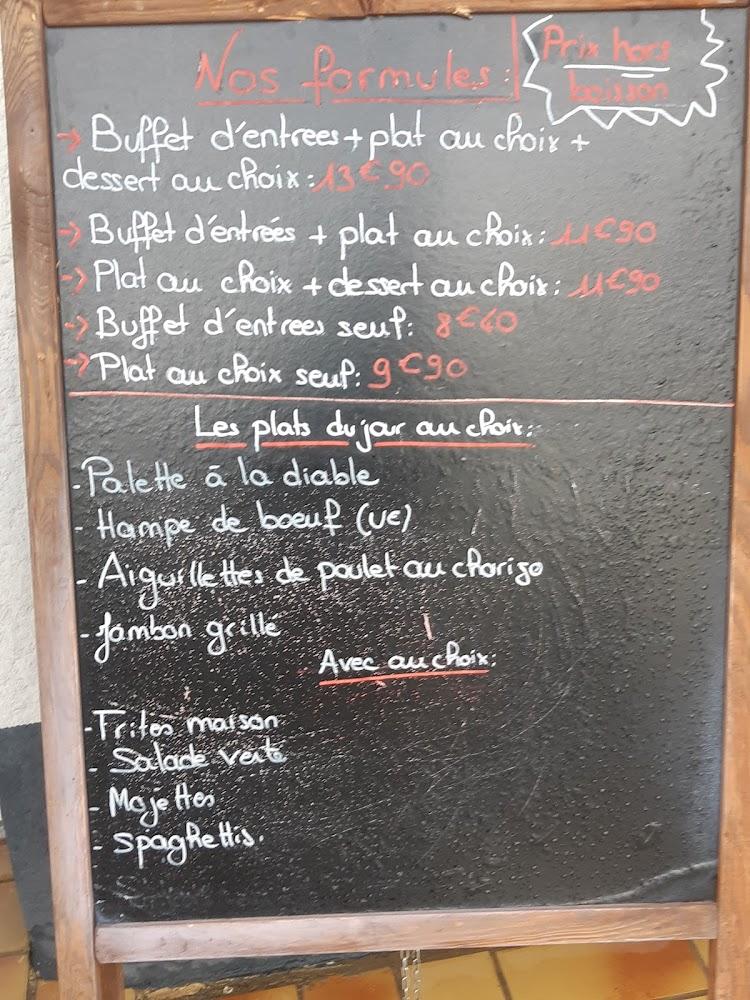 Nos formules:
Prix hors
boisson
→ Buffet d'entrees + plat au choix +
dessert au choix : 13€90
→ Buffet d'entrées + plat au choix : 11€90
→ Plat au choix + dessert au choix : 11€90
→ Buffet d'entrees seul : 8€60
→ Plat au choix seul : 9€90
Les plats du jour au choix :
- Palette à la diable
- Hampe de boeuf (UE)
- Aiguillettes de poulet au chorizo
- Jambon grillé
Avec au choix :
- Frites maison
- Salade verte
- Mojettes
- Spaghettis.